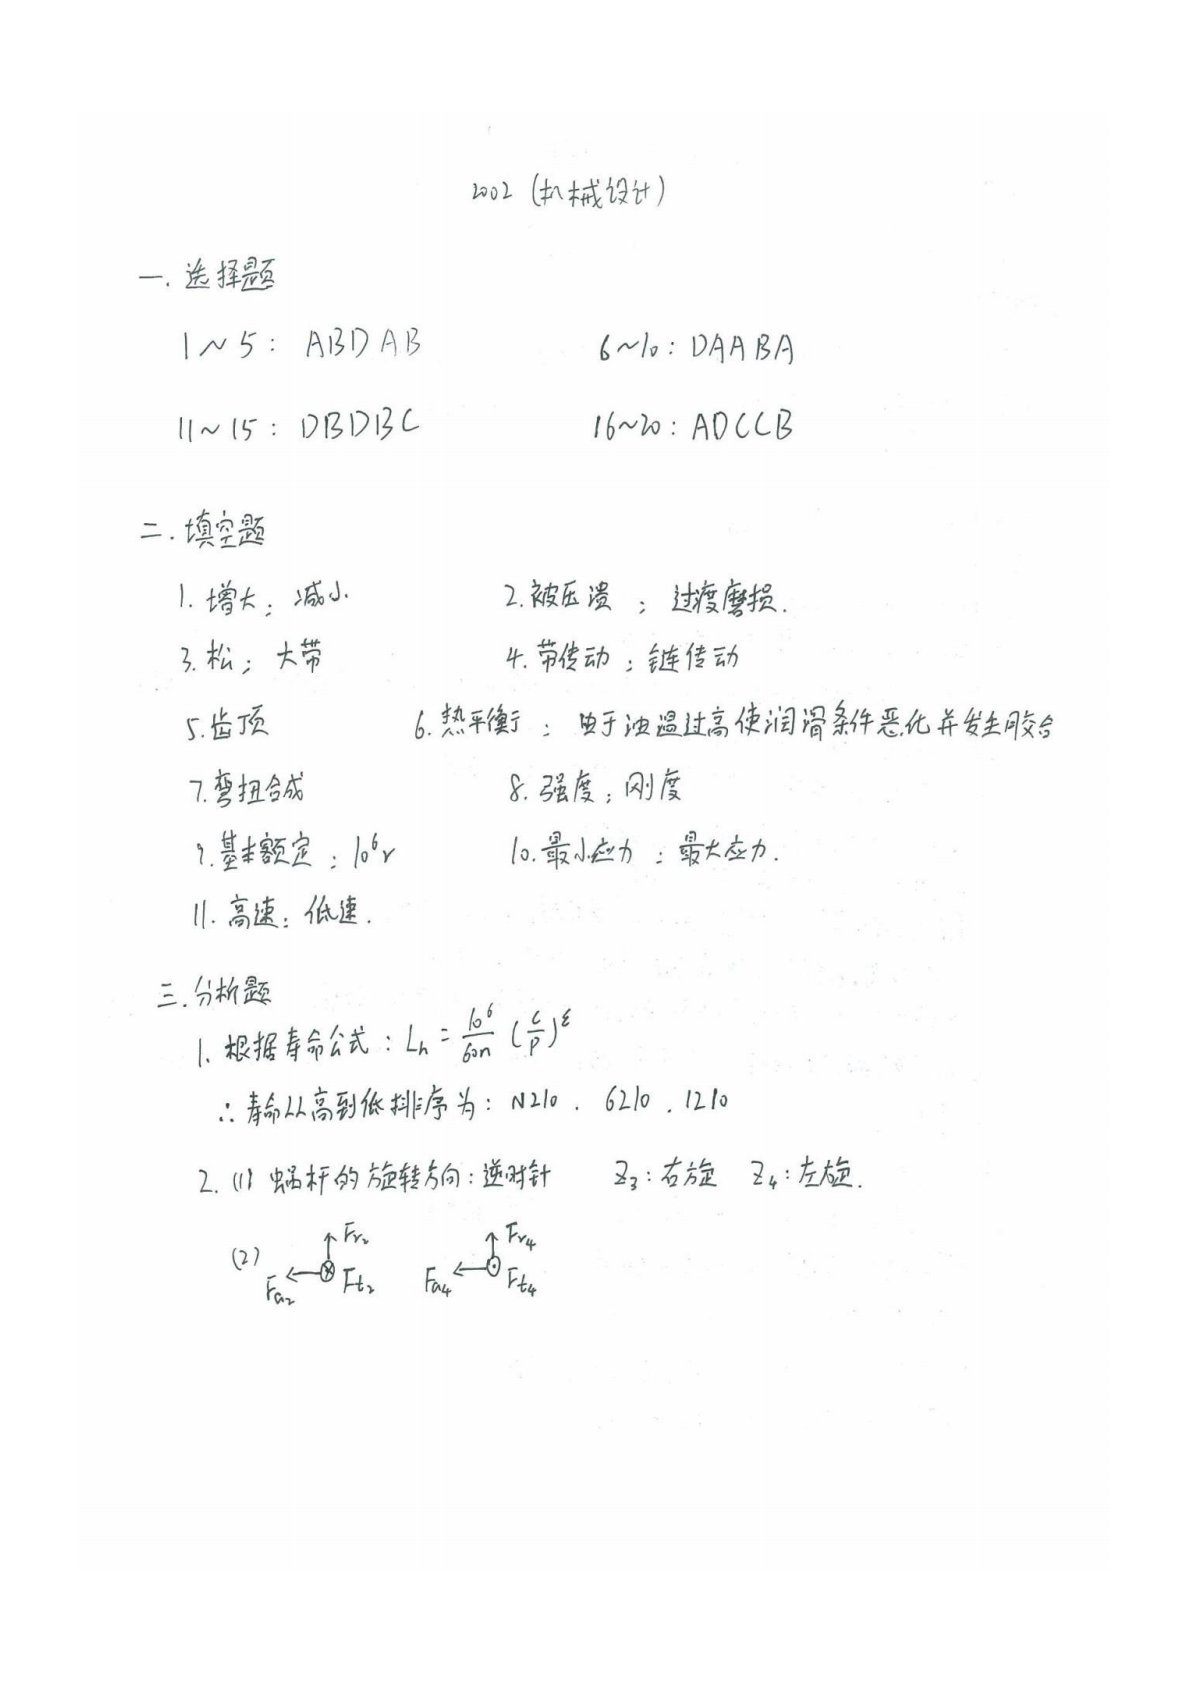 2002 (机械设计)
一. 选择题
1~5: ABDAB 6~10: DAABA
11~15: DBDBC 16~20: ADCCB
二. 填空题
1. 增大; 减小 2. 被压溃 ; 过度磨损.
3. 松; 大带 4. 带传动 ; 链传动
5. 齿顶 6. 热平衡 ; 由于油温过高使润滑条件恶化并发生胶合
7. 弯扭合成 8. 强度; 刚度
9. 基本额定 ; 10⁶r 10. 最小应力 ; 最大应力.
11. 高速; 低速.
三. 分析题
1. 根据寿命公式: Lh = 10⁶/60n (C/P)^ε
∴ 寿命从高到低排序为: N210 . 6210 . 1210
2. (1) 蜗杆的旋转方向: 逆时针 Z3: 右旋 Z4: 左旋.
(2) Fr2 Fa2 Ft2 Fr4 Fa4 Ft4